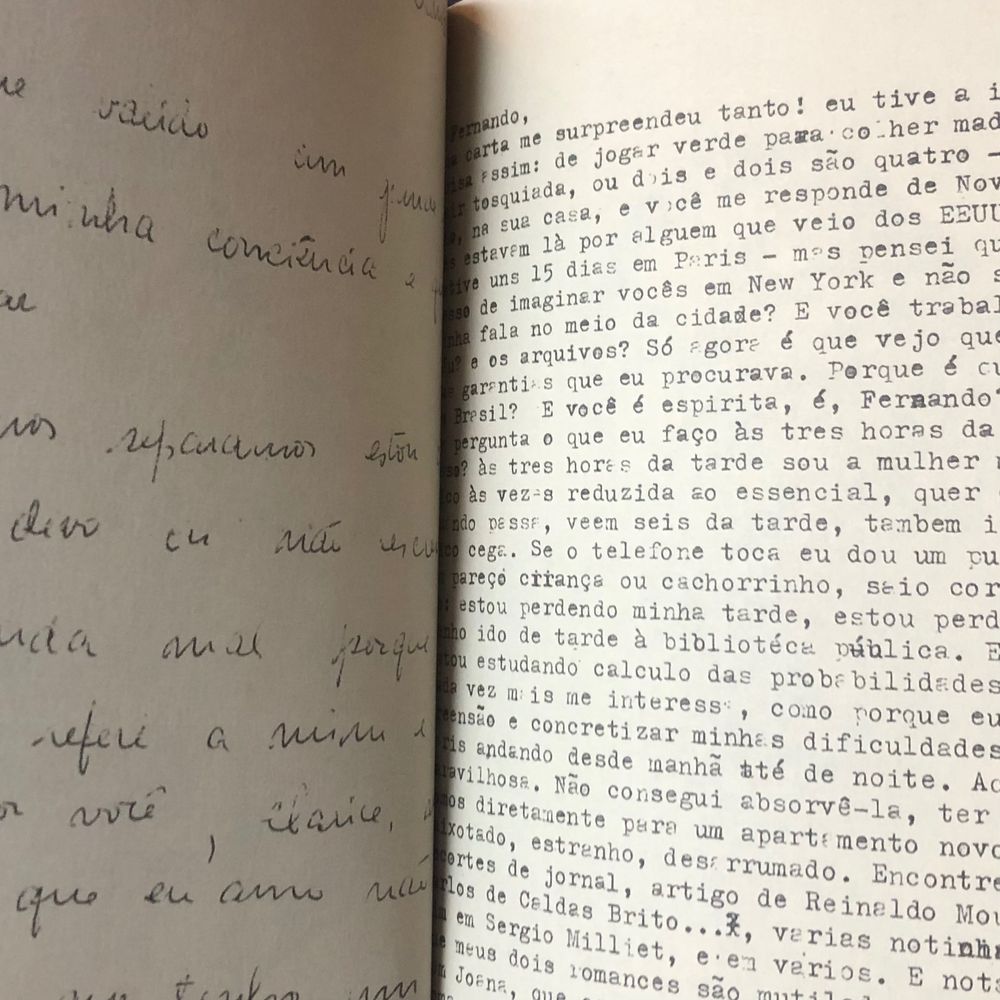 vacido um
minha conciência e
reparamos estou
devo eu não
mal porque
refere a mim e
você, Clarice,
que eu amo não
Fernando,
carta me surpreendeu tanto! eu tive a i
assim: de jogar verde para colher mad
tosquiada, ou dois e dois são quatro -
, na sua casa, e você me responde de Nov
estavam là por alguem que veio dos EEUU
tive uns 15 dias em Paris - mas pensei qu
sso de imaginar vocês em New York e não s
nha fala no meio da cidade? E você trabal
? e os arquivos? Só agora é que vejo que
garantias que eu procurava. Porque é cu
Brasil? E você é espirita, é, Fernando?
pergunta o que eu faço às tres horas da
so? às tres horas da tarde sou a mulher m
co às vezes reduzida ao essencial, quer
ndo passa, veem seis da tarde, tambem i
co cega. Se o telefone toca eu dou um pu
pareço criança ou cachorrinho, saio cor
: estou perdendo minha tarde, estou perd
nho ido de tarde à bibliotéca pública. E
tou estudando calculo das probabilidades
da vez mais me interessa, como porque eu
eensão e concretizar minhas dificuldades
ris andando desde manhã até de noite. Ac
ravilhosa. Não consegui absorvê-la, ter
mos diretamente para um apartamento novo
ixotado, estranho, desarrumado. Encontre
cortes de jornal, artigo de Reinaldo Mou
rlos de Caldas Brito..., varias notinha
m em Sergio Milliet, e em vários. E nots
e meus dois romances são mutil
m Joana, que